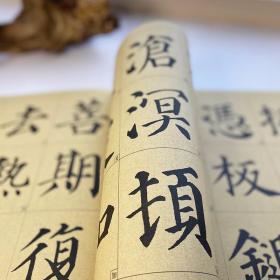 憑板
滄溟頓
善期復
去熱